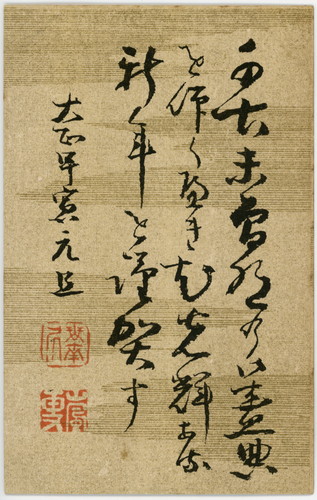 千古未曾有の御盛典
を仰くへき光輝ある
新年を謹賀す
大正甲寅元旦